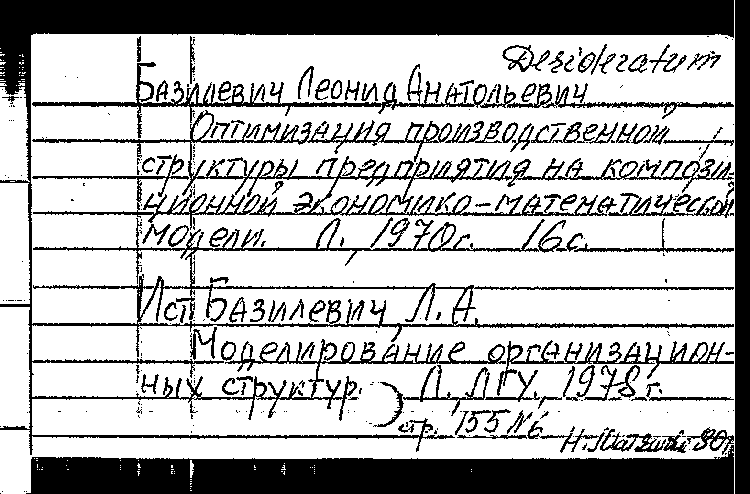 Desideratum
Базилевич, Леонид Анатольевич
Оптимизация производственной
структуры предприятия на компози-
ционной экономико-математической
модели. Л., 1970г. 16 с.
Ист. Базилевич, Л.А.
Моделирование организацион-
ных структур. Л., ЛГУ, 1978г.
стр. 155 №6
Н.